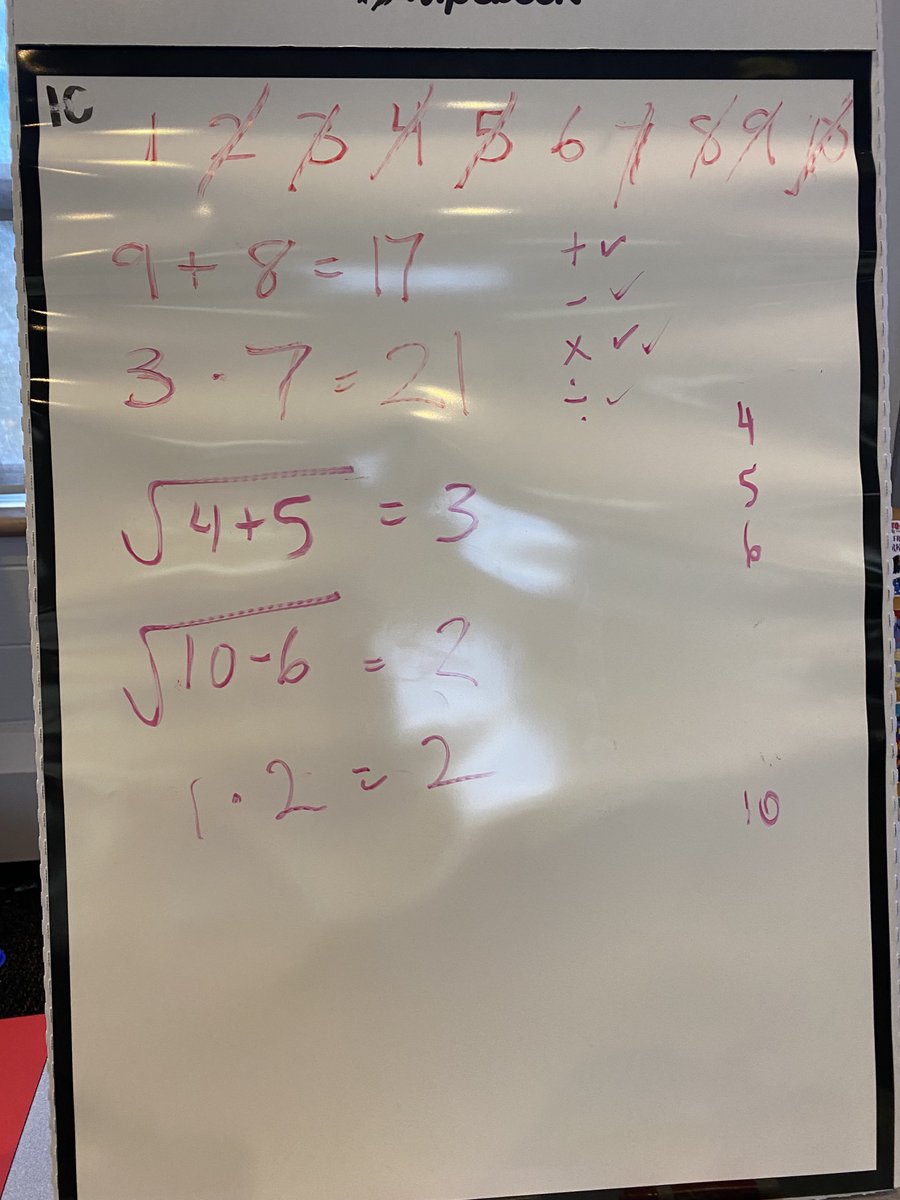 1C
1 2 3 4 5 6 7 8 9 10
9 + 8 = 17
+ ✓
- ✓
3 · 7 = 21
× ✓ ✓
÷ ✓
4
5
6
√4+5 = 3
√10-6 = 2
1 · 2 = 2
10